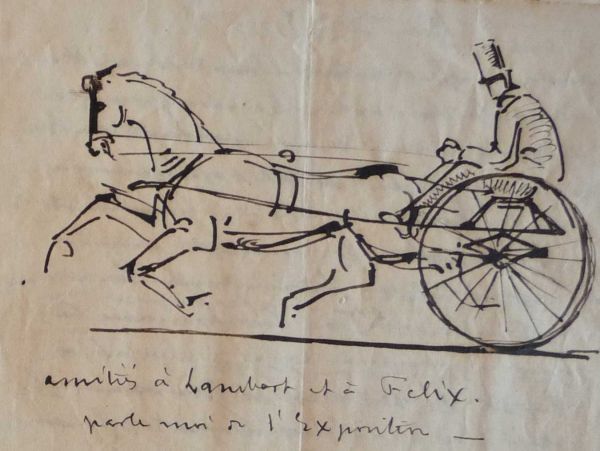 amitiés à Lambert et à Felix.
parle moi de l'Exposition —